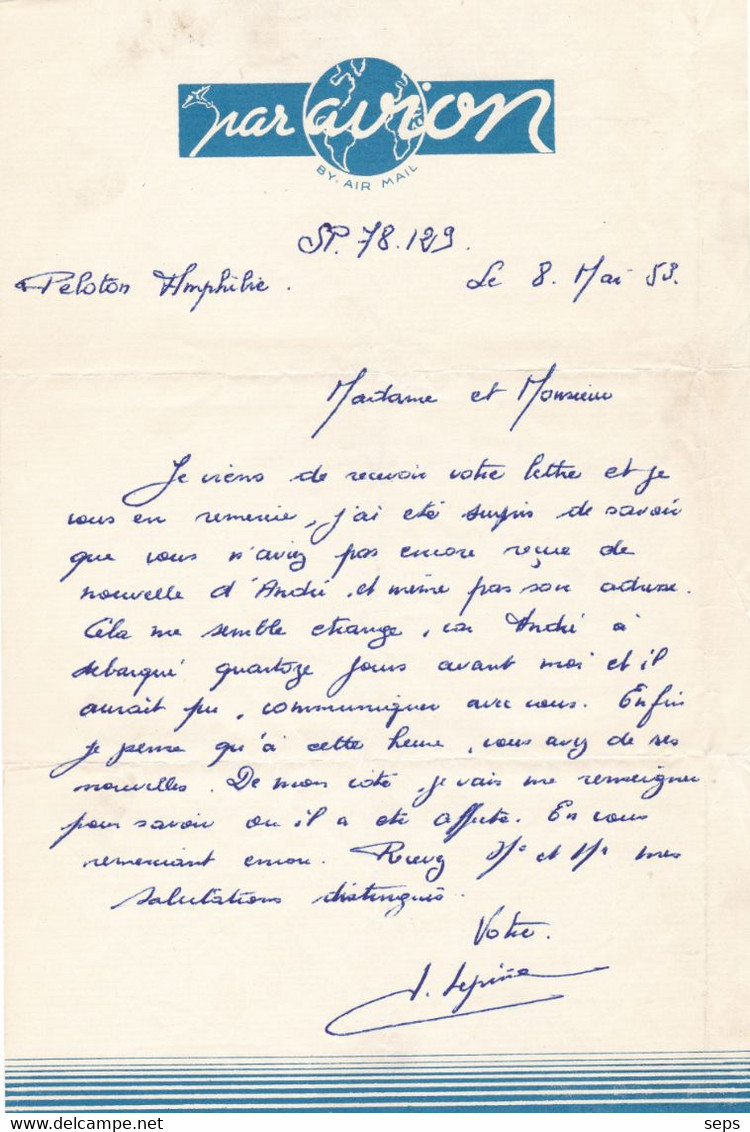 par avion
BY. AIR MAIL
SP. 78.129.
Peloton Amphibie. Le 8. Mai 53.
Madame et Monsieur
Je viens de recevoir votre lettre et je
vous en remercie, j'ai été surpris de savoir
que vous n'aviez pas encore reçue de
nouvelle d'André, et même pas son adresse.
Cela me semble etrange, car André à
debarqué quartoze jours avant moi et il
aurait pu, communiquer avec vous. Enfin
je pense qu'à cette heure, vous avez de ses
nouvelles. De mon coté, je vais me renseigner
pour savoir ou il a eté affecté. En vous
remerciant encore. Recevez Me et Mr mes
salutations distingués.
Votre.
seps